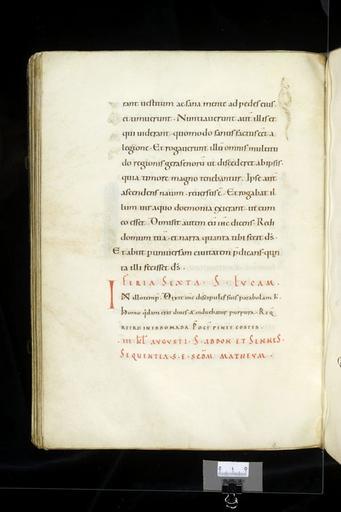 tant uestitum ac sana mente ad pedes eius.
et timuerunt. Nuntiauerunt aut illis et
qui uiderant. quomodo sanus factus eet a
legione. Et rogauerunt illu omnis multitu
do regionis gerasenoru ut discederet ab ipsis.
quia timore magno tenebantur. Ipse aut
ascendens nauim. reuersus e. Et rogabat il
lum uir a quo doemonia exierant. ut cum
eo esset. Dimisit autem eu ihc dicens. Redi
domum tua. et narra quanta tibi fecit ds.
Et abiit p uniuersam ciuitatem p̄dicans quan
ta illi fecisset ds.
FERIA SEXTA. S. LUCAM.
IN illo temp. Dixit ihc discipulis suis parabolam h.
Homo qdam erat diues & induebatur purpura. Req
III KL AUGUSTI. S. ABDON ET SENNES.
SEQUENTIA S. E. SCDM MATHEUM.